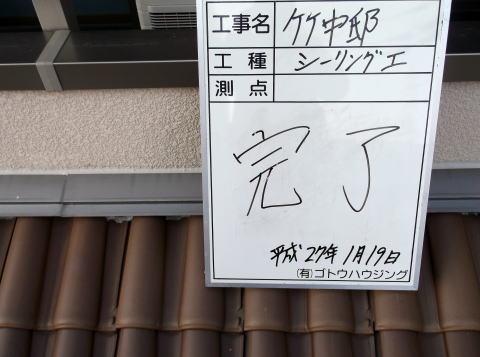 工事名 竹中邸
工種 シーリング工
測点
完了
平成27年1月19日
(有)ゴトウハウジング